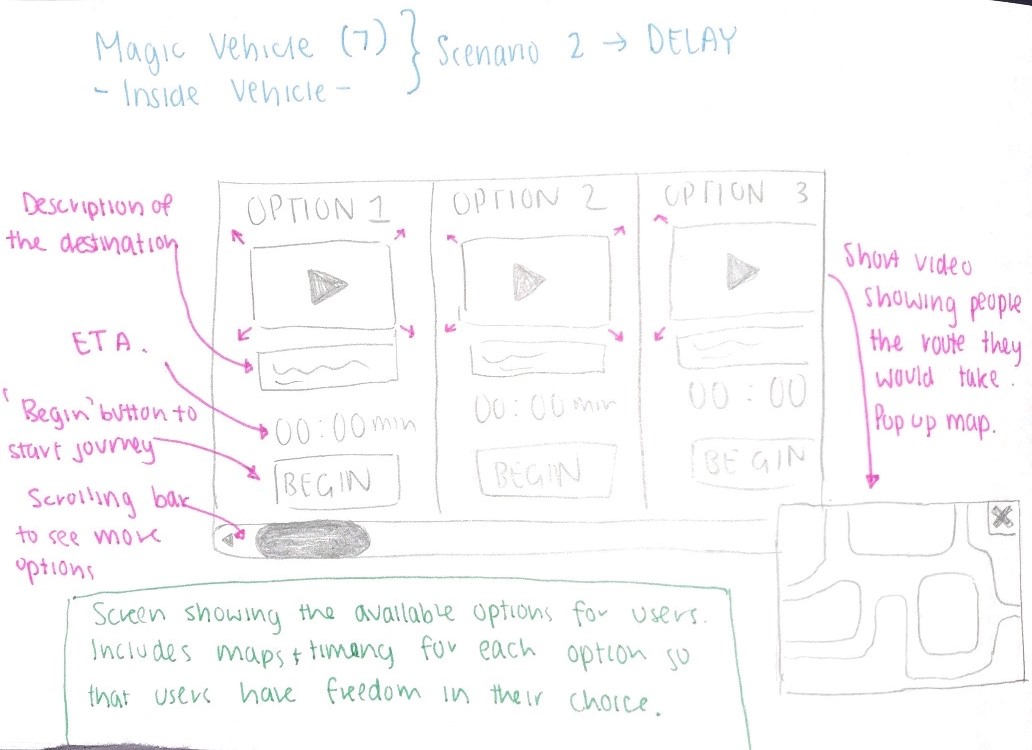 Magic Vehicle (7)
- Inside Vehicle -
Scenario 2 → DELAY
Description of
the destination
ETA.
'Begin' button to
start journey
Scrolling bar
to see more
options
OPTION 1
00:00 min
BEGIN
OPTION 2
00:00 min
BEGIN
OPTION 3
00:00
BEGIN
Short video
showing people
the route they
would take.
Pop up map.
X
Screen showing the available options for users.
Includes maps + timing for each option so
that users have freedom in their choice.